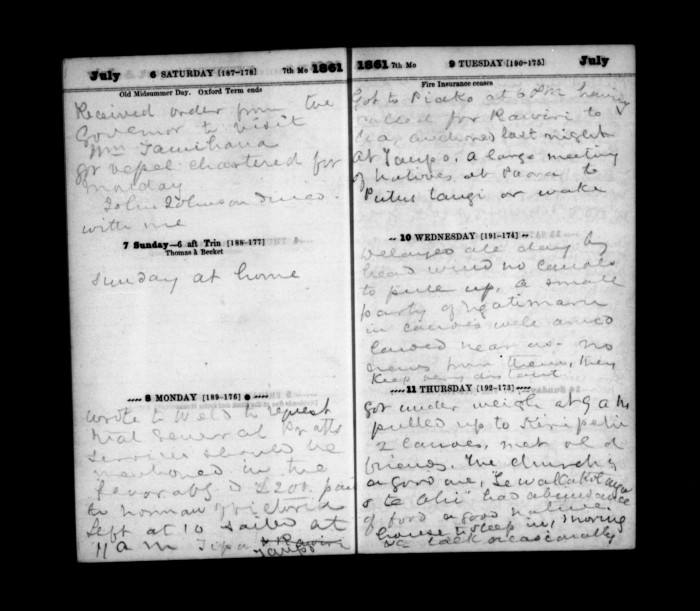 July 6 SATURDAY [187-178] 7th Mo 1861
Old Midsummer Day. Oxford Term ends
Received order from the
Governor to visit
Wm Tamihana
got vessel chartered for
Monday
John Johnson dined
with me
7 Sunday—6 aft Trin [188-177]
Thomas à Becket
Sunday at home
8 MONDAY [189-176]
wrote to Weld to request
that General Pratts
services should be
mentioned in the
favorably £200 paid
to Norman
left at 10 sailed at
11 a m
Taupo
1861 7th Mo 9 TUESDAY [190-175] July
Fire Insurance ceases
Got to Piako at 6 PM having
called for Rawiri to
anchored last night
at Taupo. A large meeting
of natives at to
Putus tangi or wake
10 WEDNESDAY [191-174]
Delayed all day by
head wind no canoes
to pull up, a small
party of Ngatimaru
in canoes well armed
landed near us. no
news from them, they
keep very distant.
11 THURSDAY [192-173]
Got under weigh at 9 a m
pulled up to
2 canoes, met old
friends. The church is
a good one,
has abundance
of food a good native
house to sleep in, moving
talk occasionally